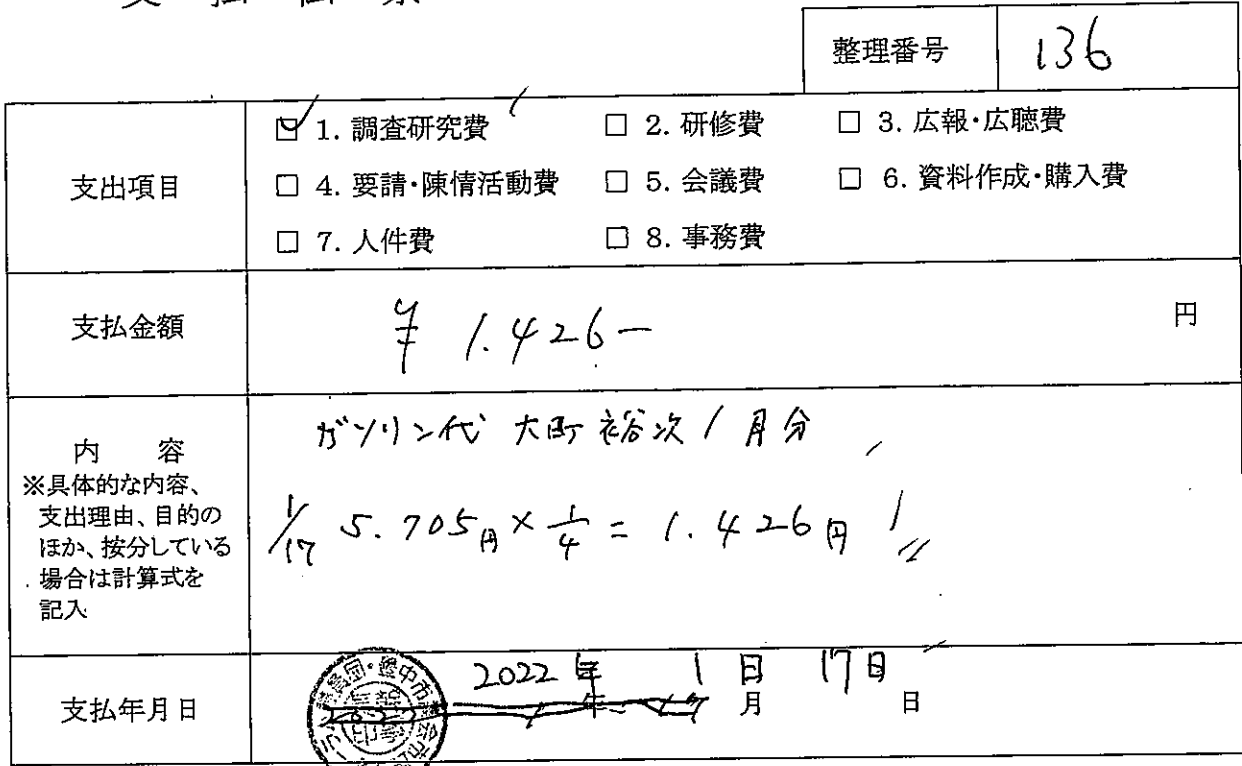 支払伝票
整理番号 136
支出項目
☑ 1. 調査研究費 □ 2. 研修費 □ 3. 広報・広聴費
□ 4. 要請・陳情活動費 □ 5. 会議費 □ 6. 資料作成・購入費
□ 7. 人件費 □ 8. 事務費
支払金額 ¥ 1.426- 円
内 容
※具体的な内容、
支出理由、目的の
ほか、按分している
場合は計算式を
記入
ガソリン代 大町裕次 1月分
1/17 5.705円×1/4=1.426円
支払年月日
2022年 1日 17日
年 月 日